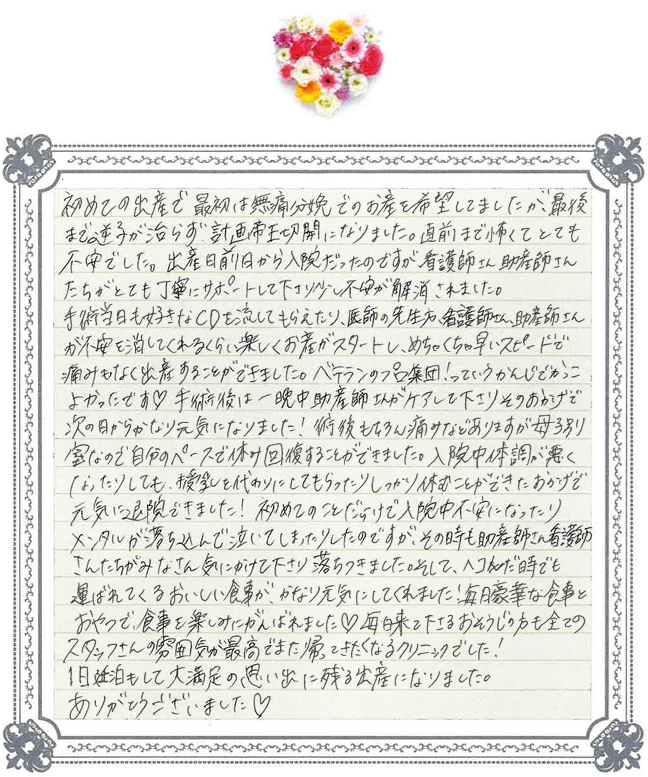 初めての出産で最初は無痛分娩でのお産を希望してましたが、最後
まで逆子が治らず計画帝王切開になりました。直前まで怖くてとても
不安でした。出産日前日から入院だったのですが看護師さん助産師さん
たちがとても丁寧にサポートして下さり少し不安が解消されました。
手術当日も好きなCDを流してもらえたり、医師の先生方、看護師さん、助産師さん
が不安を消してくれるくらい楽しくお産がスタートし、めちゃくちゃ早いスピードで
痛みもなく出産することができました。ベテランのプロ集団!っていうかんじでかっこ
よかったです♡ 手術後は一晩中助産師さんがケアして下さりそのおかげで
次の日からかなり元気になりました! 術後もちろん痛みなどありますが母子別
室なので自分のペースで休み回復することができました。入院中体調が悪く
なったりしても、授乳を代わりにしてもらったりしっかり休むことができたおかげで
元気に退院できました! 初めてのことだらけで入院中不安になったり
メンタルが落ち込んで泣いてしまったりしたのですが、その時も助産師さん看護師
さんたちがみなさん気にかけて下さり落ちつきました。そして、ヘコんだ時でも
運ばれてくるおいしい食事が、かなり元気にしてくれました!毎日豪華な食事と
おやつで、食事を楽しみにがんばれました♡ 毎日来て下さるおそうじの方も全ての
スタッフさんの雰囲気が最高でまた帰ってきたくなるクリニックでした!
1日延泊もして大満足の思い出に残る出産になりました。
ありがとうございました♡